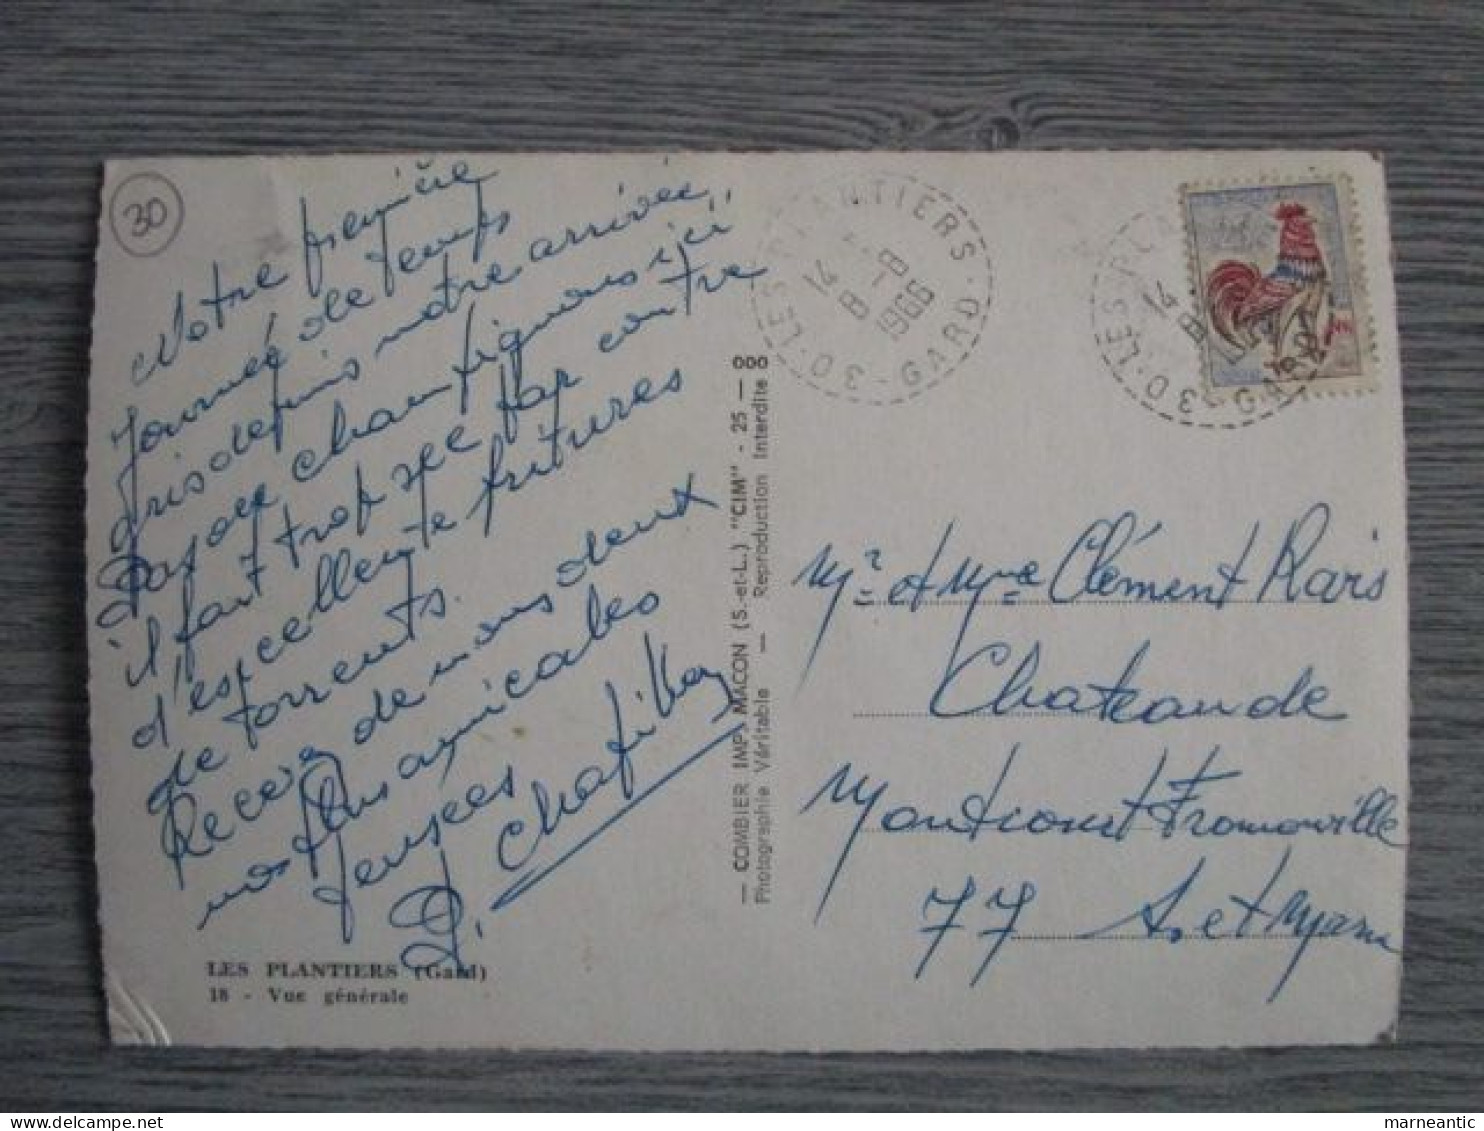 30
Notre première
journée de temps
gris depuis notre arrivée,
Pas de champignons ici
il fait trop sec par contre
d'excellente fritures
de torrents.
Recevez de nous deux
nos plus amicales
pensées
LES PLANTIERS (Gard)
18 - Vue générale
— COMBIER IMP. MACON (S.-et-L.) "CIM" - 25 — 000
Photographie Véritable — Reproduction Interdite
30 - LES PLANTIERS - GARD
14 H
8 - 8
1966
30 - LES PLANTIERS - GARD
Mr et Mme Clément Rais
Chateau de
Montcourt Fromonville
77 S. et Marne
marneantic